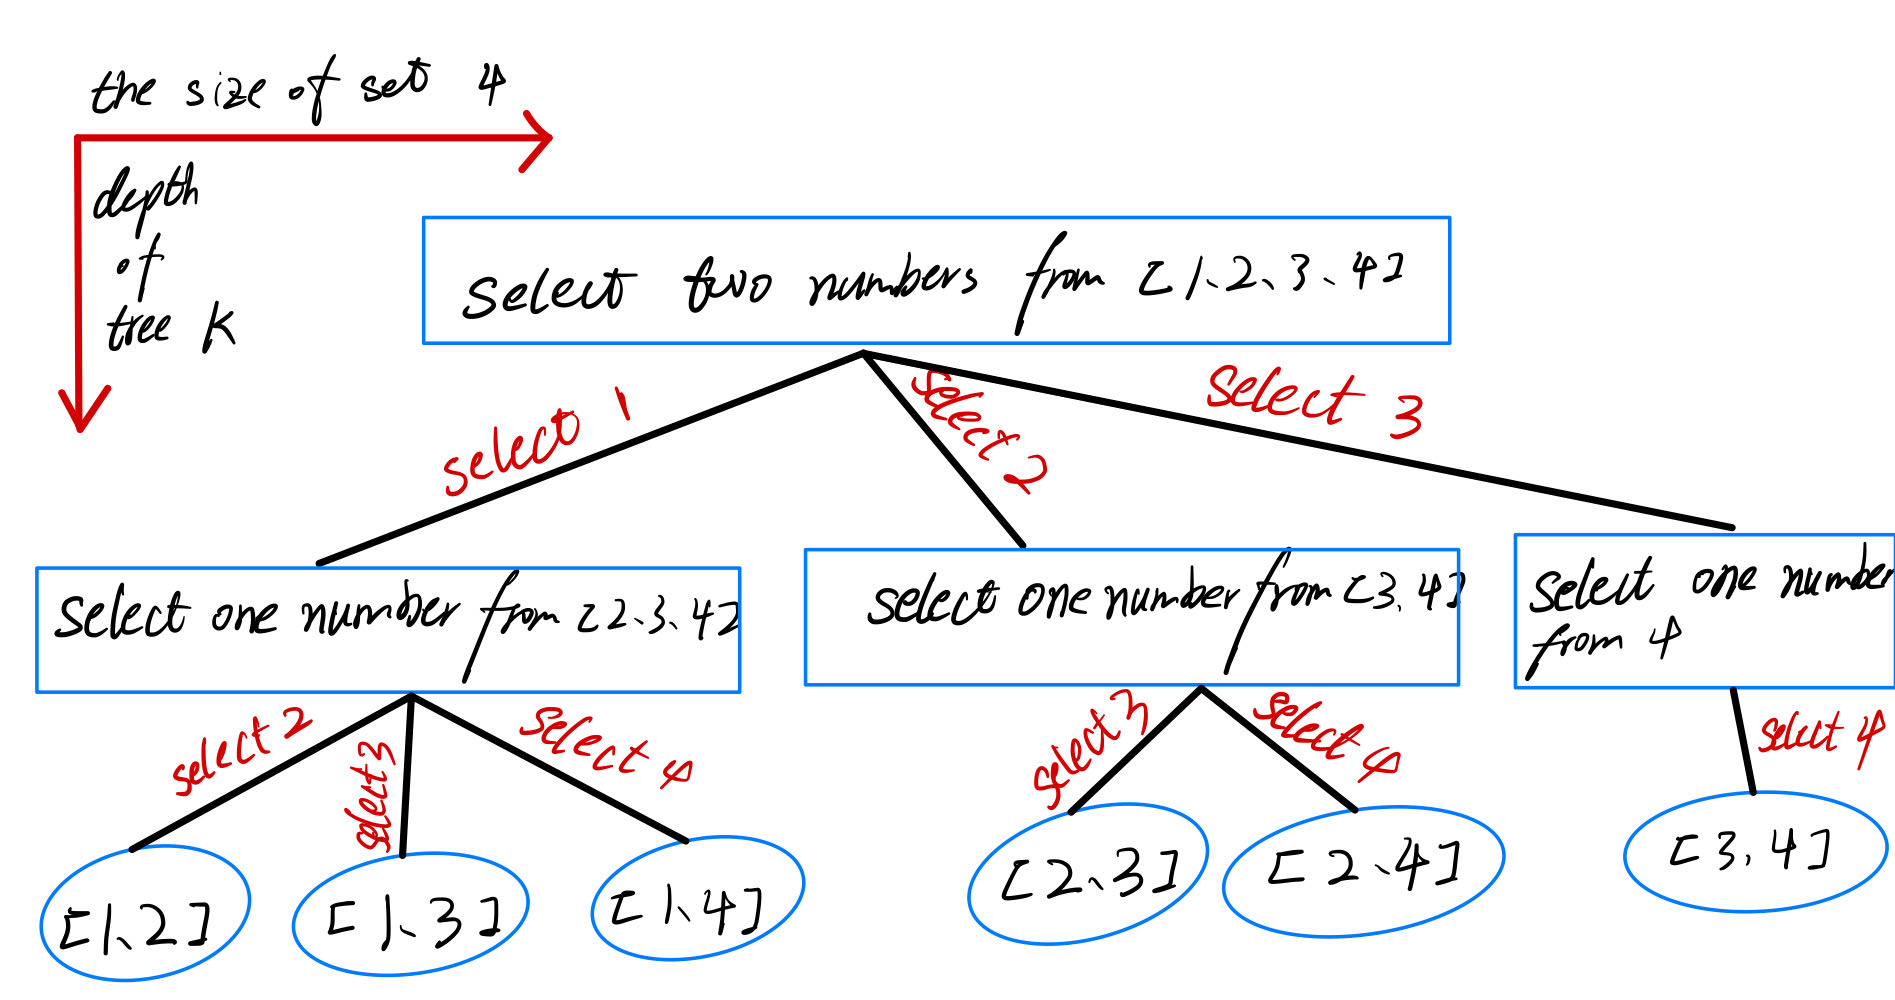 the size of set 4
depth
of
tree K
select two numbers from [1、2、3、4]
select 1
select 2
select 3
select one number from [2、3、4]
select one number from [3、4]
select one number
from 4
select 2
select 3
select 4
select 3
select 4
select 4
[1、2]
[1、3]
[1、4]
[2、3]
[2、4]
[3、4]